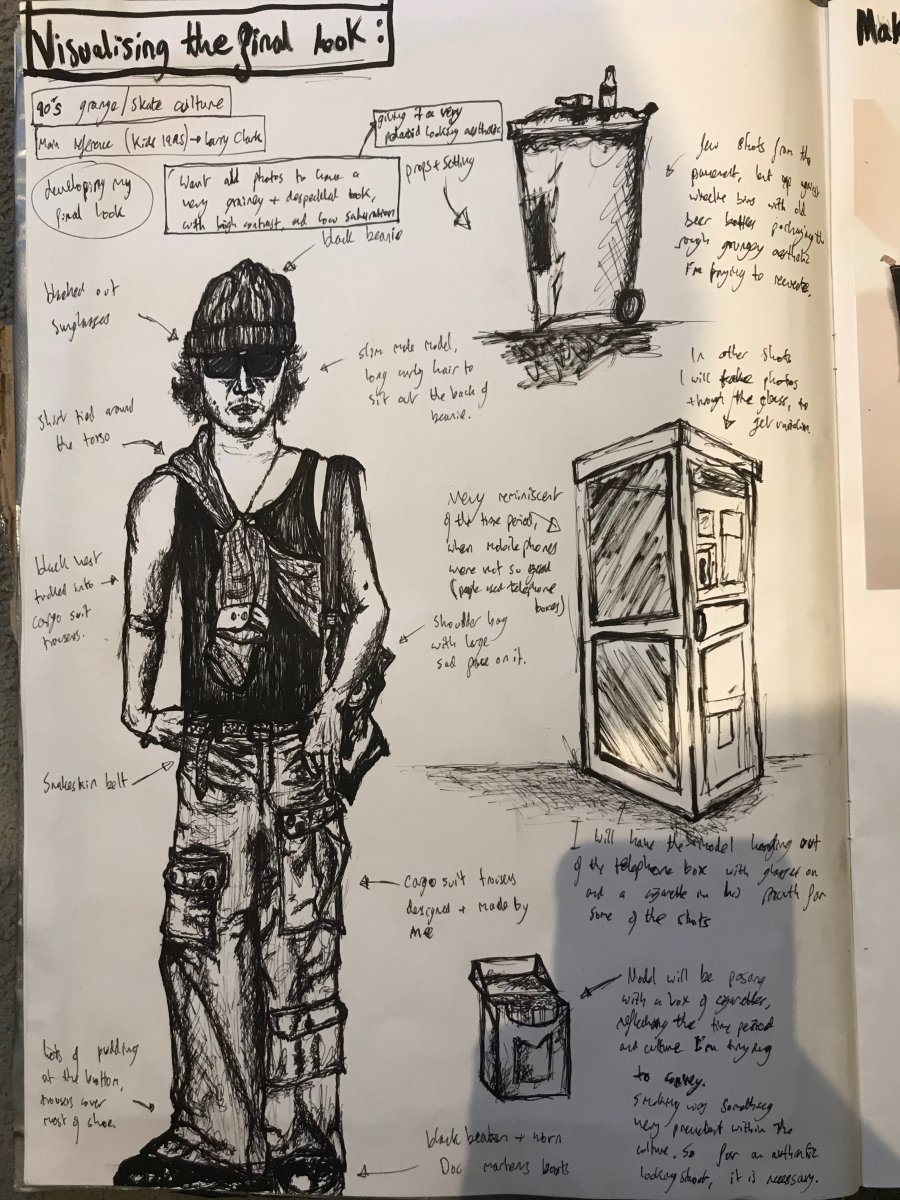 Visualising the final look:
Mak
90's grunge/skate culture
Main reference (Kids 1995) → Larry Clark
developing my
final look
Want all photos to have a
very grainey + despeckled look,
with high contrast, and low saturation
giving it a very
polaroid looking aesthetic
props + setting
few shots from the
pavement, but up against
wheelie bins with old
beer bottles
rough grungey aesthetic
I'm trying to recreate.
black beanie
blacked out
sunglasses
slim male model,
long curly hair to
sit out the back of
beanie.
shirt tied around
the torso
In other shots
I will take photos
through the glass, to
get variation.
Very reminiscent
of the time period,
when mobile phones
were not so good
(people used telephone
boxes)
black vest
tucked into
cargo suit
trousers.
shoulder bag
with large
sad face on it.
Snakeskin belt
I will have the model hanging out
of the telephone box with glasses on
and a cigarette in his mouth for
some of the shots
cargo suit trousers
designed + made by
me
Model will be posing
with a box of cigarettes,
reflecting the time period
and culture I'm trying
to convey.
Smoking was something
very prevalent within the
culture. So for an authentic
looking shoot, it is necessary.
lots of pudding
at the bottom,
trousers cover
most of shoe.
black beaten + worn
Doc martens boots